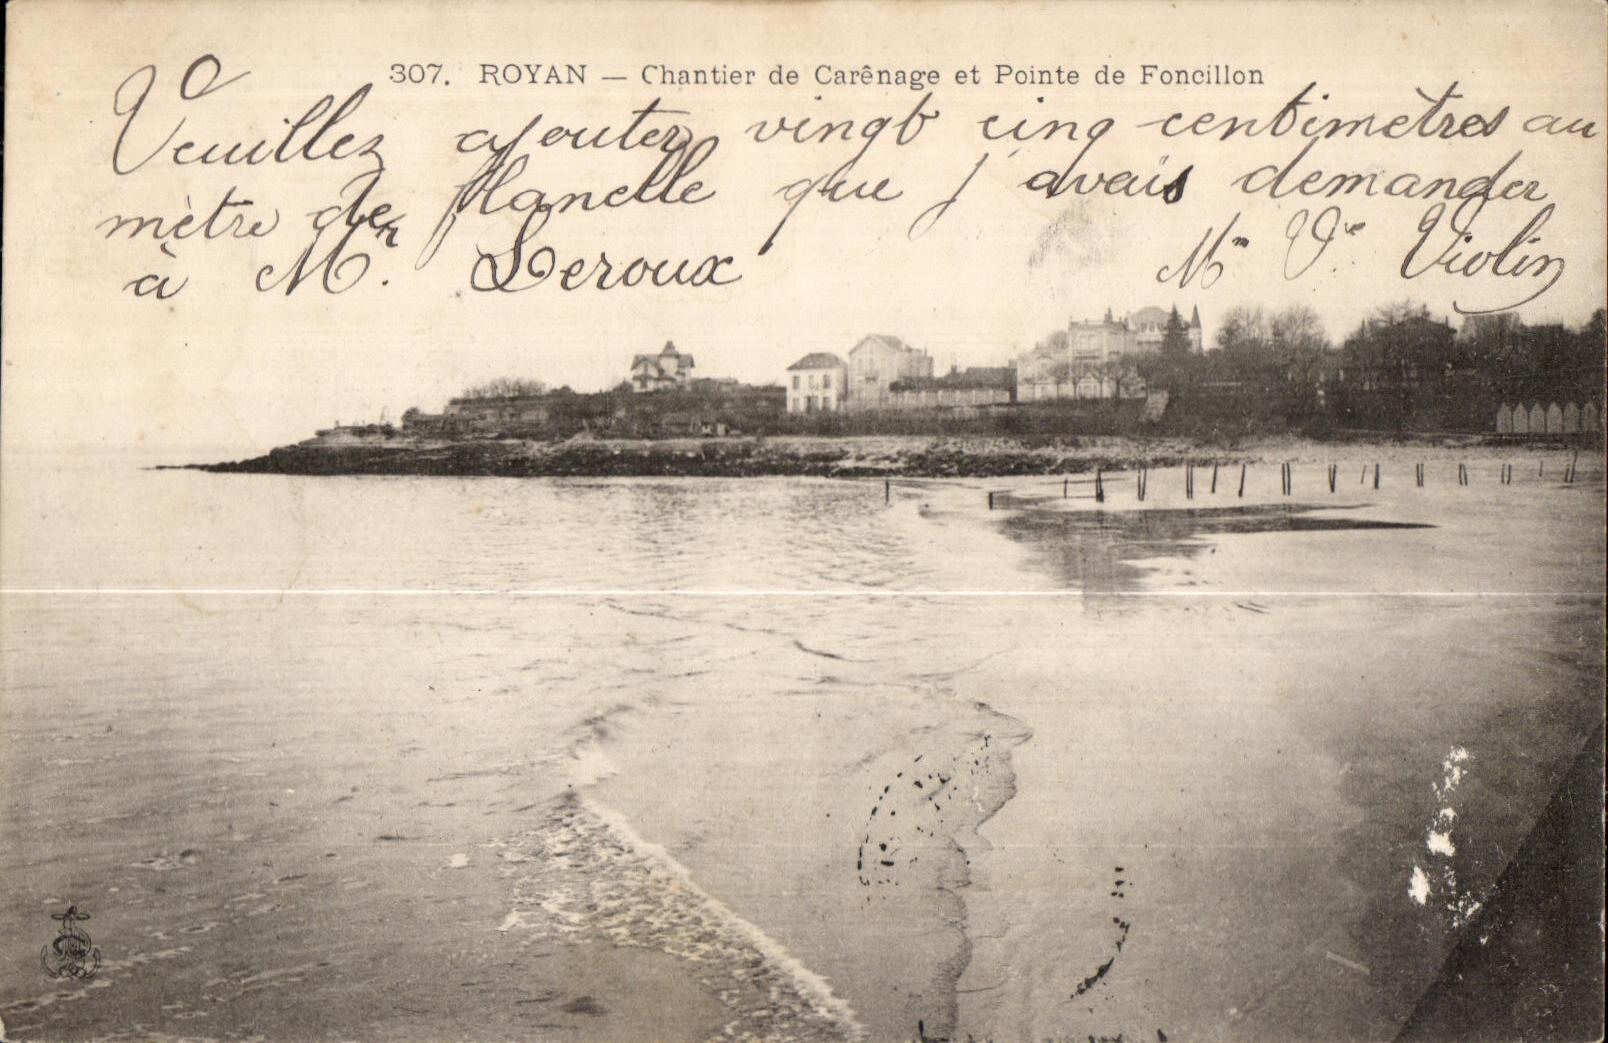 307. ROYAN — Chantier de Carênage et Pointe de Foncillon
Veuillez ajouter vingt cinq centimètres au
mètre de flanelle que j'avais demander
à Mr. Leroux Mm Vie Violin